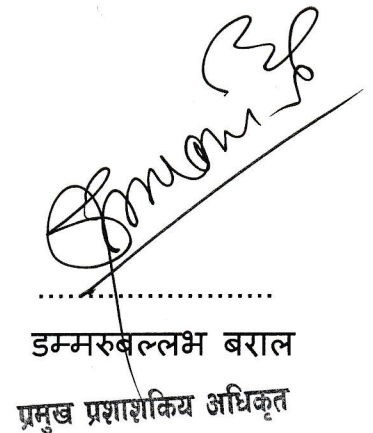 ........................
डम्मरुबल्लभ बराल
प्रमुख प्रशाशकिय अधिकृत